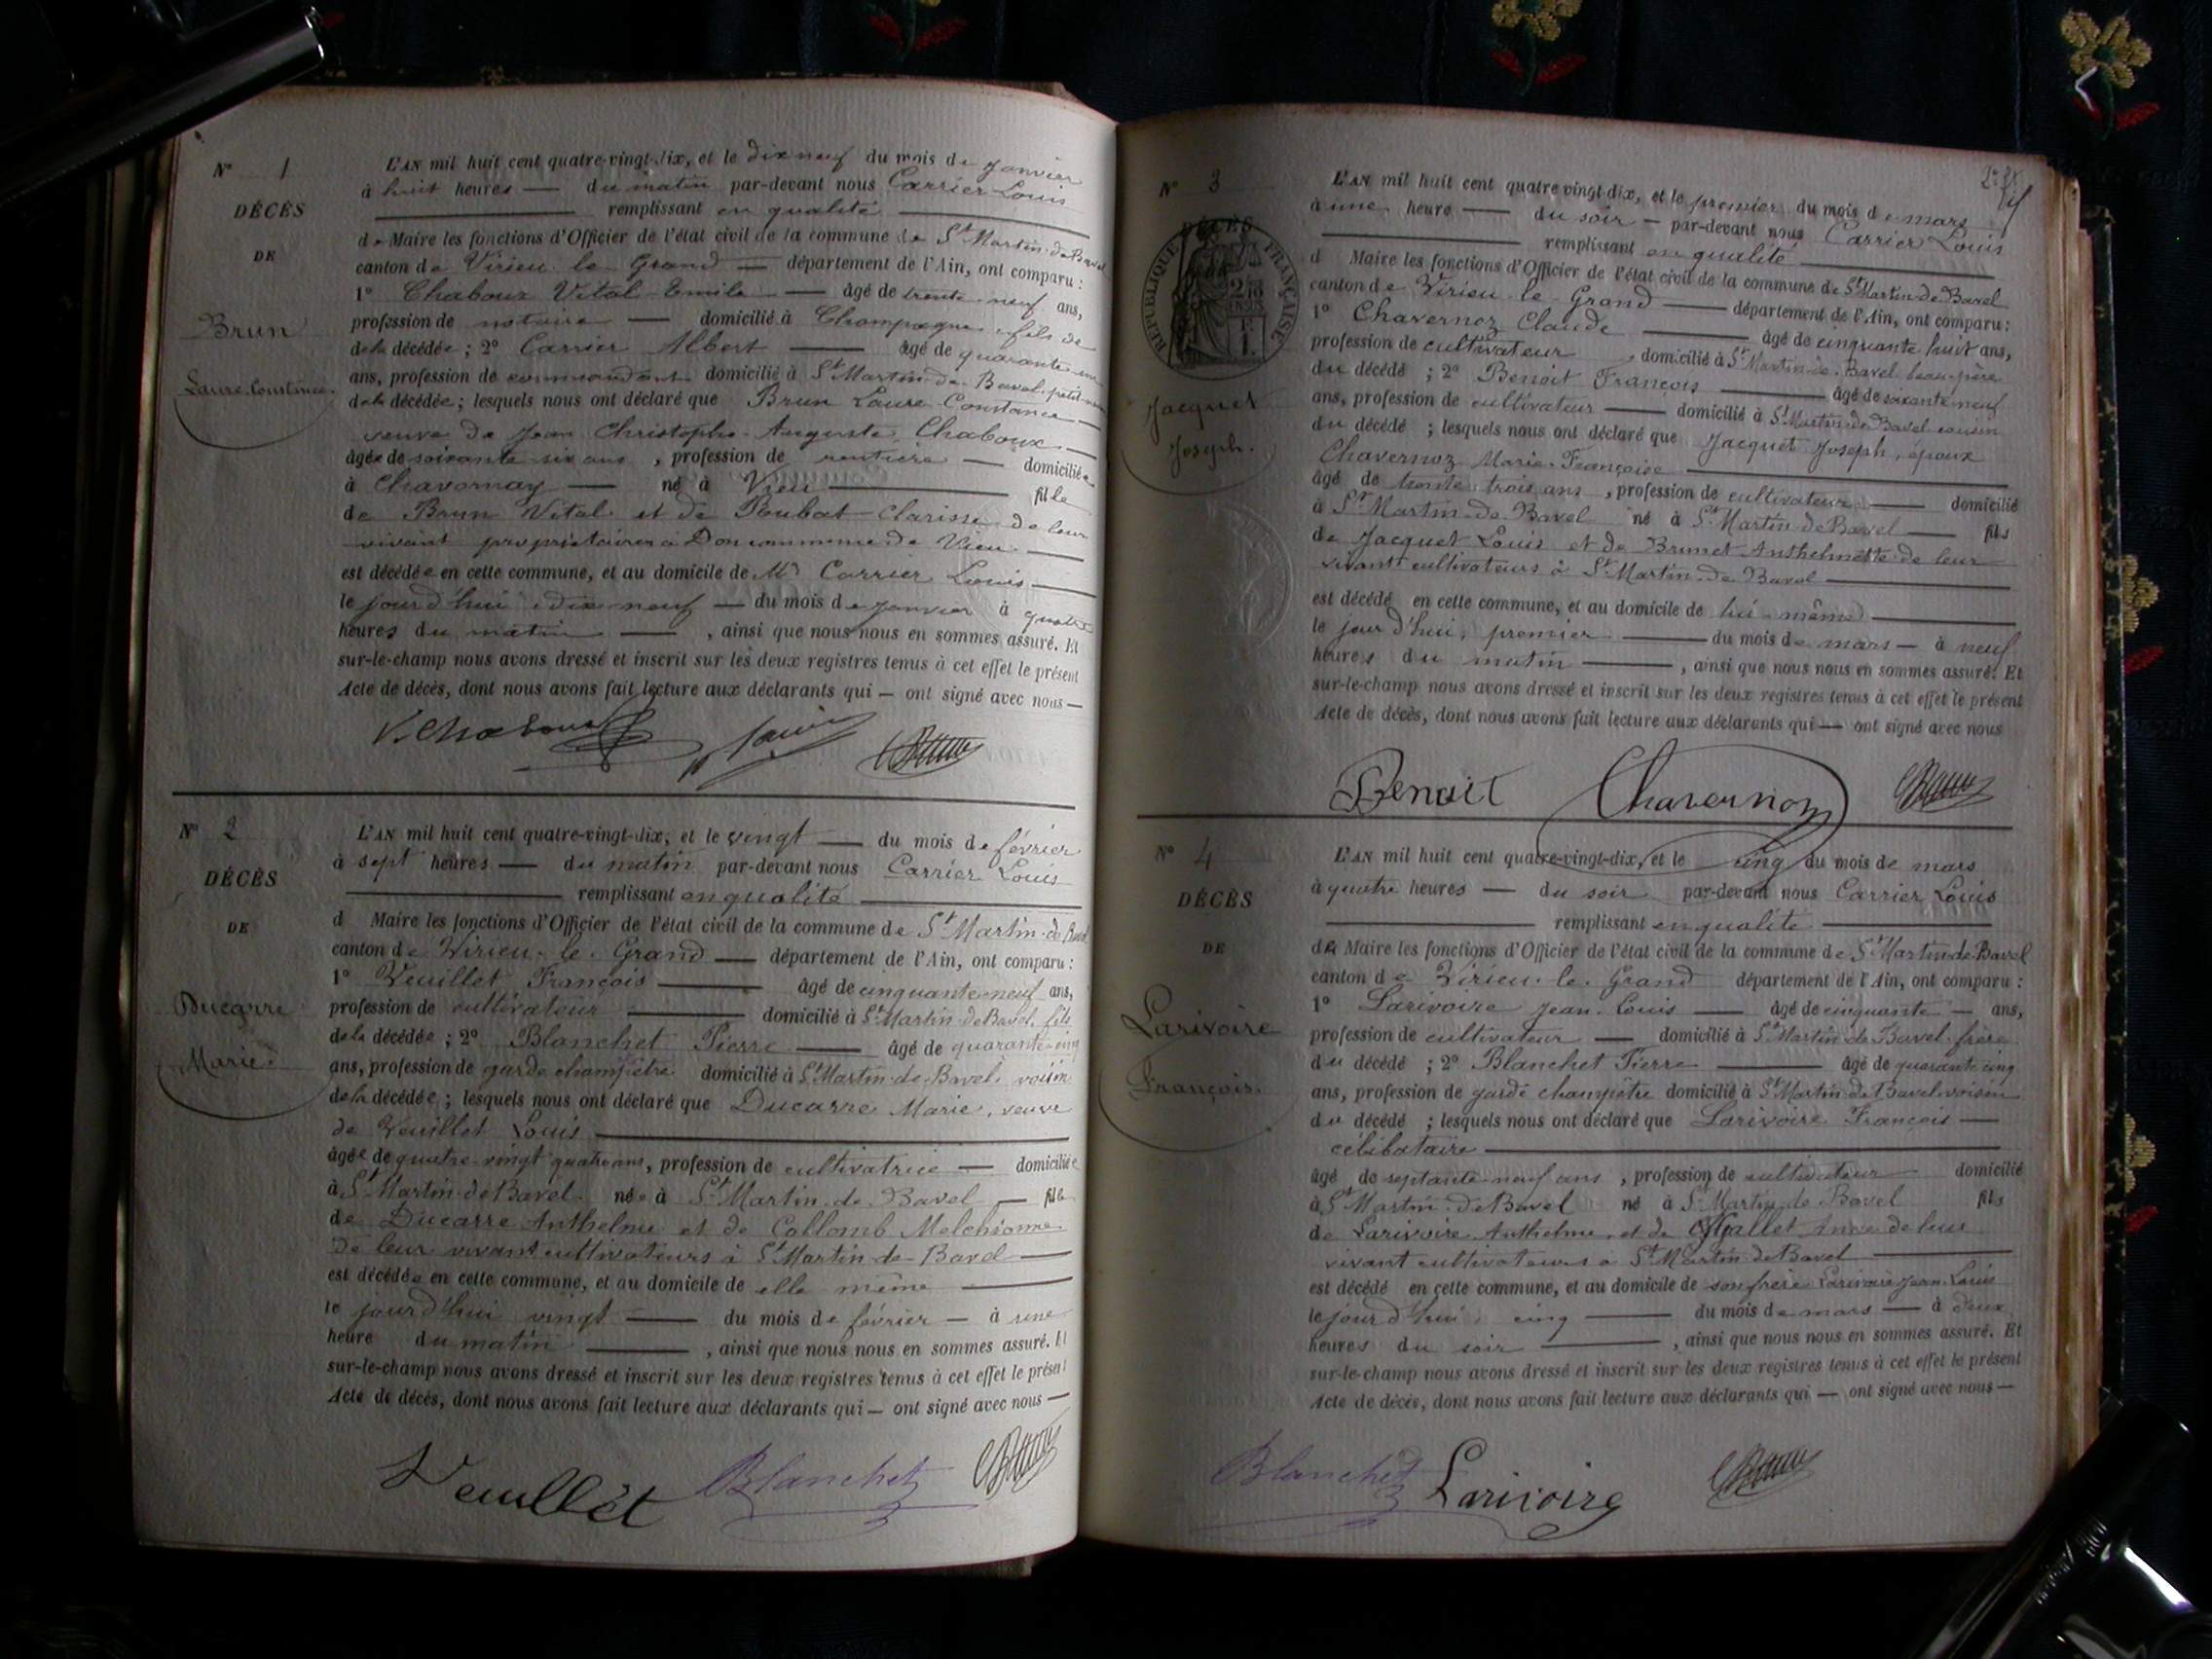 N° 1
DÉCÈS
DE
Brun
Laure Constance
L'AN mil huit cent quatre-vingt-dix, et le dix neuf du mois de janvier
à huit heures — du matin par-devant nous Carrier Louis
remplissant en qualité
de Maire les fonctions d'Officier de l'état civil de la commune de St Martin-de-Bavel
canton de Virieu le Grand — département de l'Ain, ont comparu :
1° Chaboux Vital Emile — âgé de trente neuf ans,
profession de notaire — domicilié à Champagne fils de
de la décédée ; 2° Carrier Albert — âgé de quarante un
ans, profession de commandant domicilié à St Martin-de-Bavel petit
de la décédée ; lesquels nous ont déclaré que Brun Laure Constance —
veuve de Jean Christophe Auguste Chaboux —
âgée de soixante six ans , profession de rentière — domiciliée
à Chavornay — né à Vieu — fille
de Brun Vital et de Roubat Clarisse de leur
vivant propriétaires à Don commune de Vieu —
est décédée en cette commune, et au domicile de Mr Carrier Louis —
le jourd'hui dix neuf — du mois de janvier à quatre
heures du matin — , ainsi que nous nous en sommes assuré. Et
sur-le-champ nous avons dressé et inscrit sur les deux registres tenus à cet effet le présent
Acte de décès, dont nous avons fait lecture aux déclarants qui — ont signé avec nous —
V. Chaboux
N° 2
DÉCÈS
DE
Ducarre
Marie
L'AN mil huit cent quatre-vingt-dix, et le vingt — du mois de février
à sept heures — du matin par-devant nous Carrier Louis
remplissant en qualité
d Maire les fonctions d'Officier de l'état civil de la commune de St Martin-de-Bavel
canton de Virieu-le-Grand — département de l'Ain, ont comparu :
1° Veuillet François — âgé de cinquante-neuf ans,
profession de cultivateur — domicilié à St Martin-de-Bavel, fils
de la décédée ; 2° Blanchet Pierre — âgé de quarante-cinq
ans, profession de garde champêtre domicilié à St Martin-de-Bavel, voisin
de la décédée ; lesquels nous ont déclaré que Ducarre Marie, veuve
de Veuillet Louis —
âgée de quatre vingt quatre ans, profession de cultivatrice — domiciliée
à St Martin-de-Bavel née à St Martin-de-Bavel — fille
de Ducarre Anthelme et de Collomb Melchionne
de leur vivant cultivateurs à St Martin-de-Bavel —
est décédée en cette commune, et au domicile de elle même —
le jourd'hui vingt — du mois de février — à une
heure du matin — , ainsi que nous nous en sommes assuré. Et
sur-le-champ nous avons dressé et inscrit sur les deux registres tenus à cet effet le présent
Acte de décès, dont nous avons fait lecture aux déclarants qui — ont signé avec nous —
Veuillet Blanchet
N° 3
DÉCÈS
RÉPUBLIQUE FRANÇAISE
Jacquet
Joseph.
L'AN mil huit cent quatre vingt-dix, et le premier du mois de mars
à une heure — du soir — par-devant nous Carrier Louis
remplissant en qualité
d Maire les fonctions d'Officier de l'état civil de la commune de St Martin-de-Bavel
canton de Virieu-le-Grand — département de l'Ain, ont comparu :
1° Chavernoz Claude — âgé de cinquante huit ans,
profession de cultivateur , domicilié à St Martin-de-Bavel beau-père
du décédé ; 2° Benoit François — âgé de soixante neuf
ans, profession de cultivateur — domicilié à St Martin-de-Bavel cousin
du décédé ; lesquels nous ont déclaré que Jacquet Joseph, époux
Chavernoz Marie-Françoise —
âgé de trente trois ans , profession de cultivateur — domicilié
à St Martin-de-Bavel né à St Martin-de-Bavel — fils
de Jacquet Louis et de Brunet Anthelmette de leur
vivant cultivateurs à St Martin-de-Bavel —
est décédé en cette commune, et au domicile de lui-même —
le jourd'hui, premier — du mois de mars — à neuf
heures du matin — , ainsi que nous nous en sommes assuré. Et
sur-le-champ nous avons dressé et inscrit sur les deux registres tenus à cet effet le présent
Acte de décès, dont nous avons fait lecture aux déclarants qui — ont signé avec nous
Benoit Chavernoz
N° 4
DÉCÈS
DE
Larivoire
François.
L'AN mil huit cent quatre-vingt-dix, et le cinq du mois de mars
à quatre heures — du soir par-devant nous Carrier Louis
remplissant en qualité
de Maire les fonctions d'Officier de l'état civil de la commune de St Martin-de-Bavel
canton de Virieu-le-Grand département de l'Ain, ont comparu :
1° Larivoire Jean-Louis — âgé de cinquante — ans,
profession de cultivateur — domicilié à St Martin-de-Bavel frère
du décédé ; 2° Blanchet Pierre — âgé de quarante cinq
ans, profession de garde champêtre domicilié à St Martin-de-Bavel voisin
du décédé ; lesquels nous ont déclaré que Larivoire François —
célibataire —
âgé de septante neuf ans , profession de cultivateur domicilié
à St Martin-de-Bavel né à St Martin-de-Bavel fils
de Larivoire Anthelme, et de Gallet Anne de leur
vivant cultivateurs à St Martin-de-Bavel —
est décédé en cette commune, et au domicile de son frère Larivoire Jean-Louis
le jourd'hui, cinq — du mois de mars — à deux
heures du soir — , ainsi que nous nous en sommes assuré. Et
sur-le-champ nous avons dressé et inscrit sur les deux registres tenus à cet effet le présent
Acte de décès, dont nous avons fait lecture aux déclarants qui — ont signé avec nous —
Blanchet Larivoire